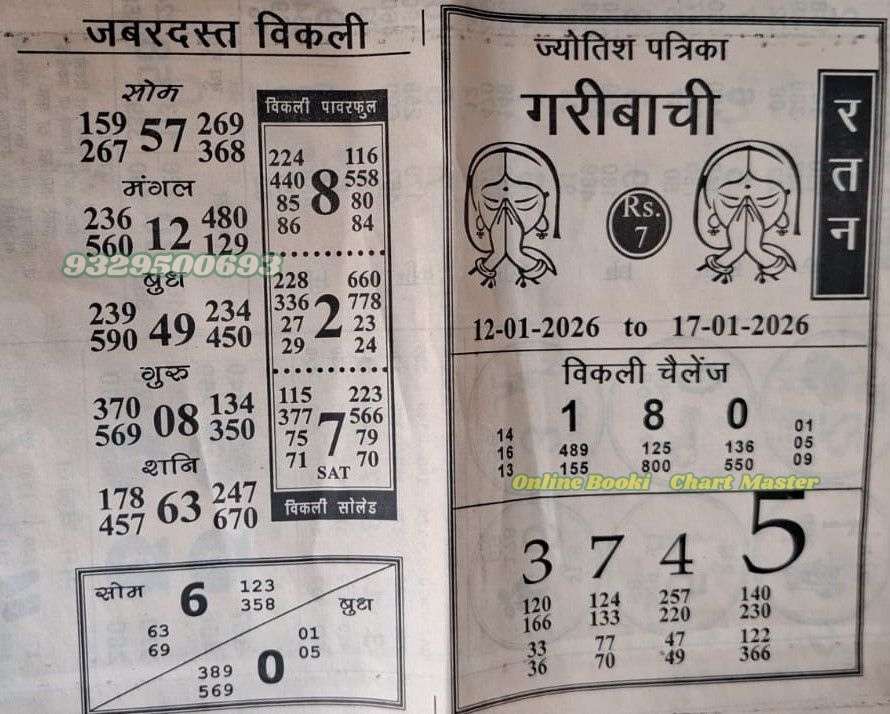 जबरदस्त विकली
सोम
159 57 269
267 368
मंगल
236 12 480
560 129
9329500693
बुध
239 49 234
590 450
गुरु
370 08 134
569 350
शनि
178 63 247
457 670
विकली पावरफुल
224 116
440 8 558
85 80
86 84
228 660
336 2 778
27 23
29 24
115 223
377 7 566
75 79
71 SAT 70
विकली सोलेड
सोम 6 123
358
63
69
बुध
01
0 05
389
569
ज्योतिश पत्रिका
गरीबाची
रतन
Rs.
7
12-01-2026 to 17-01-2026
विकली चैलेंज
1 8 0
14 01
16 489 125 136 05
13 155 800 550 09
Online Booki Chart Master
3 7 4 5
120 124 257 140
166 133 220 230
33 77 47 122
36 70 49 366